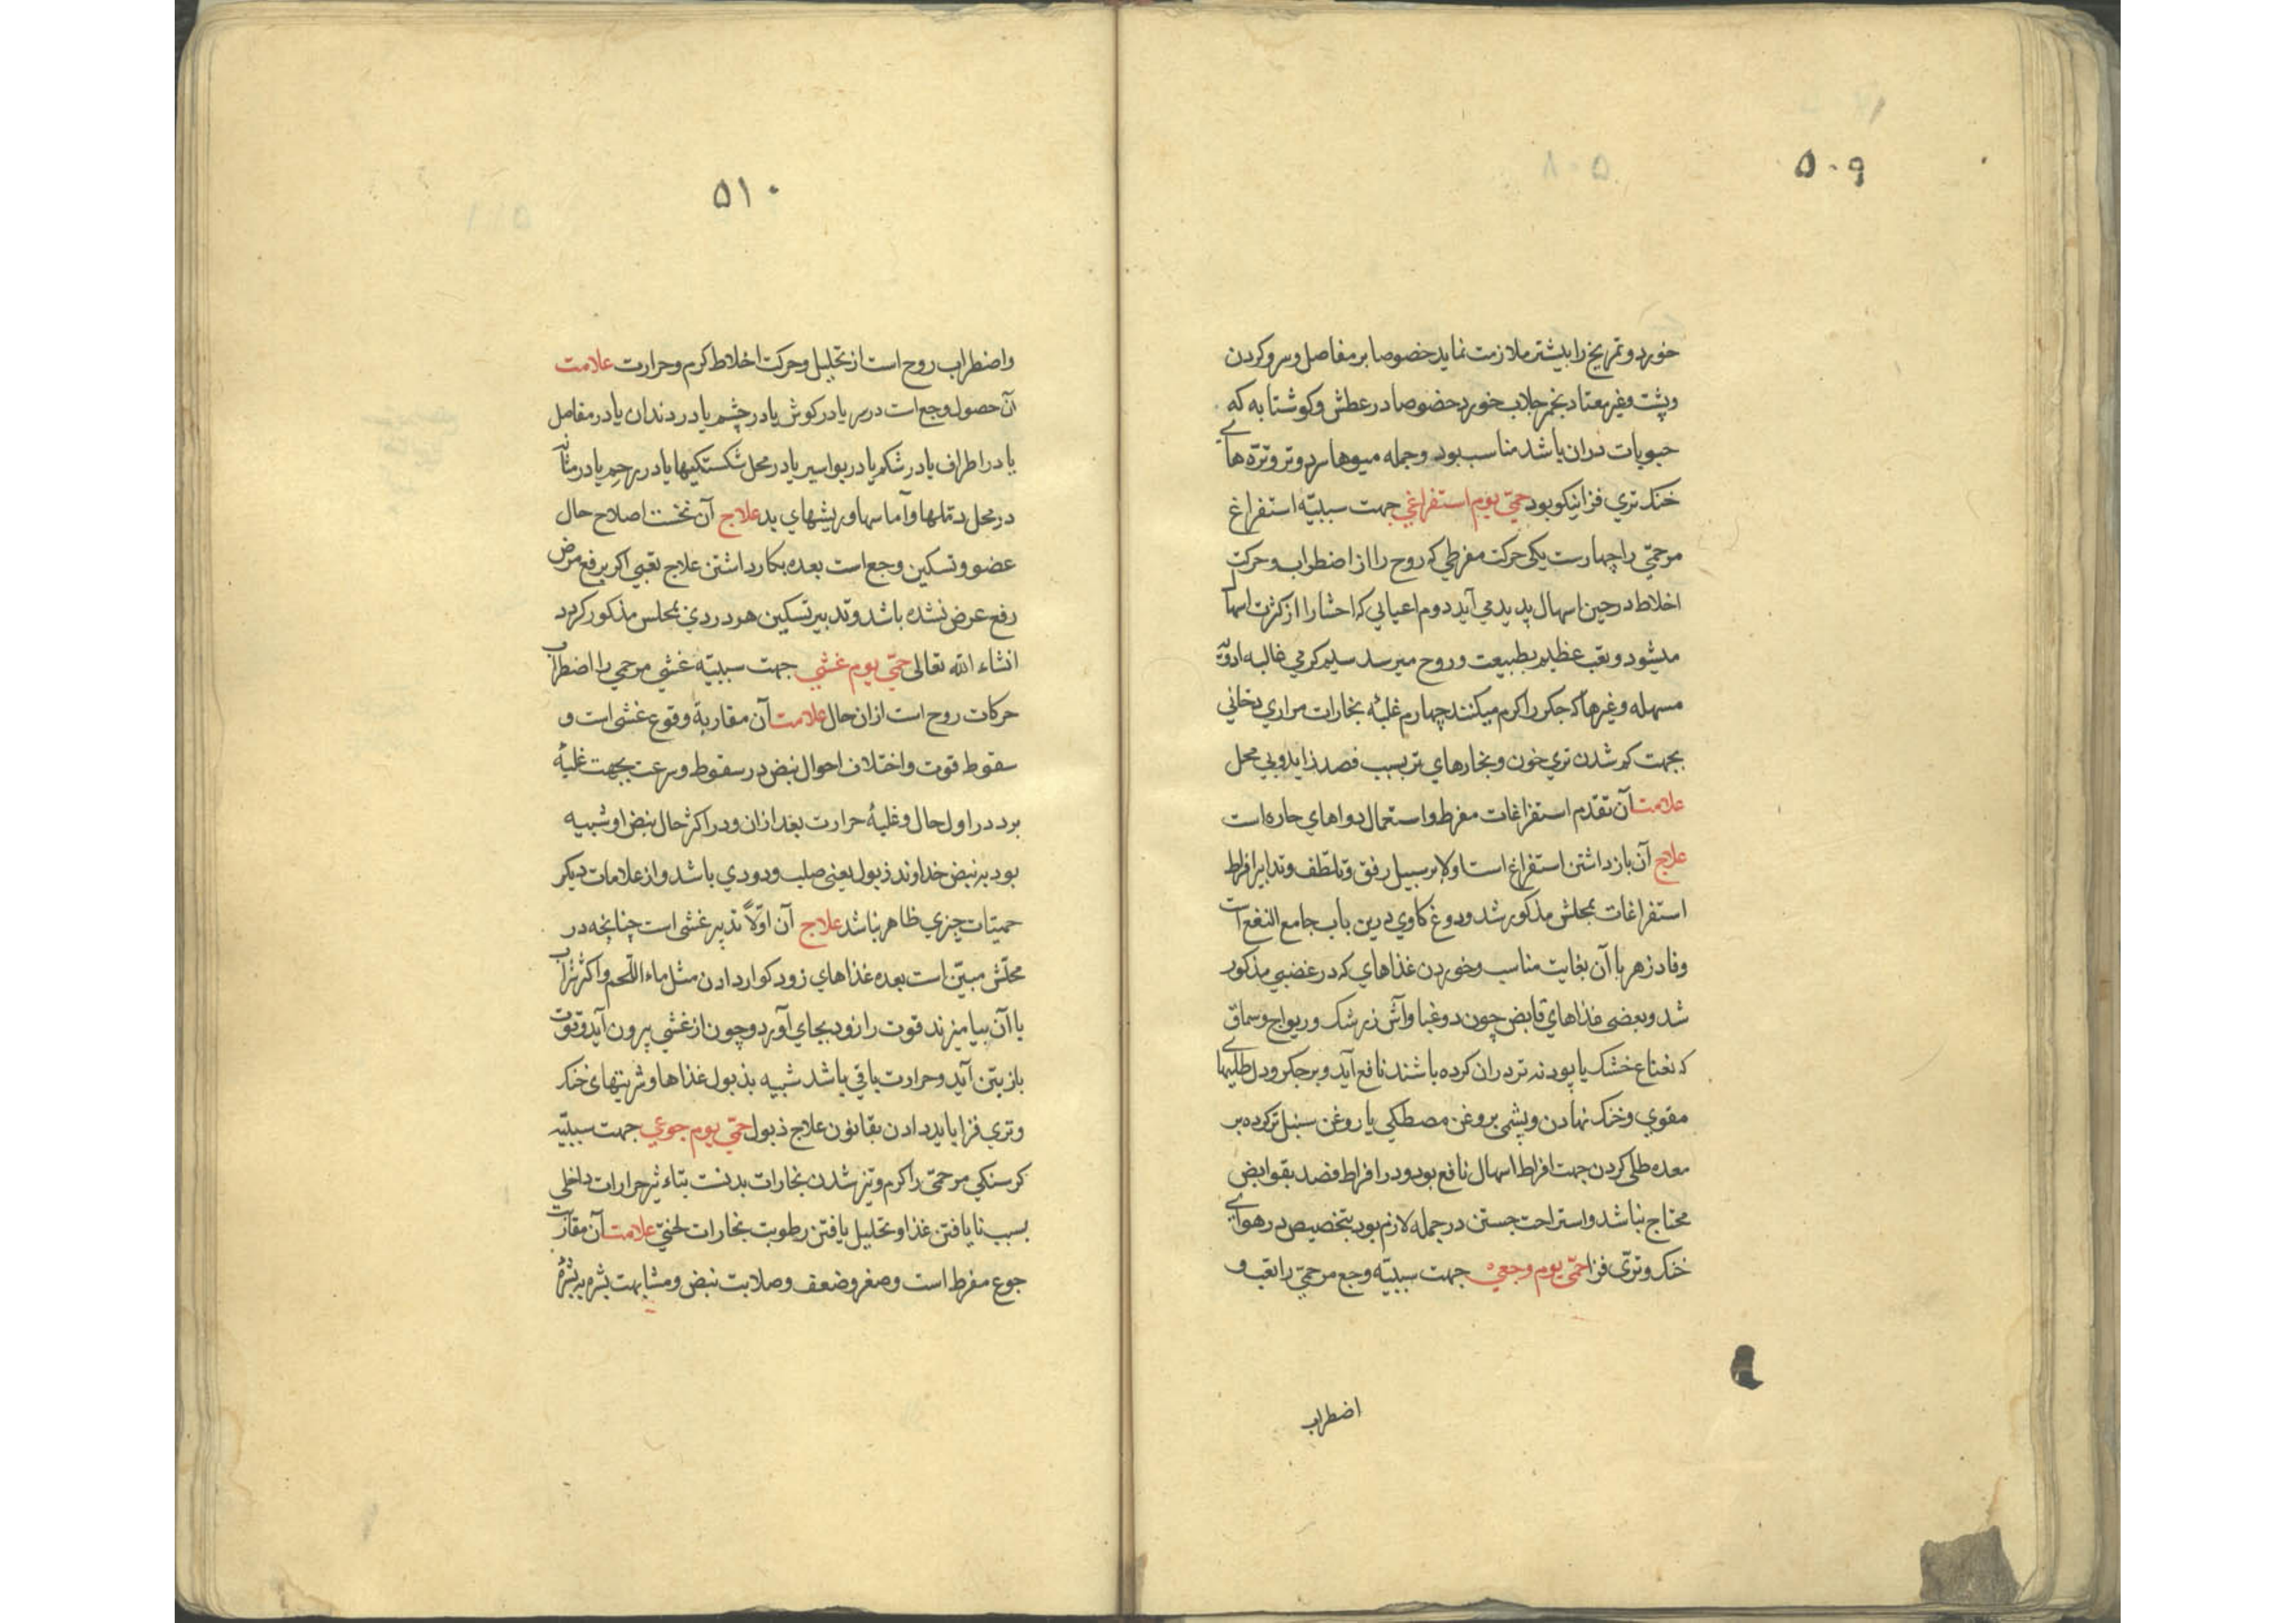 ۵۰۹
خورد و تمریخ را بیشتر ملازمت نماید خصوصا بر مفاصل و سر و کردن
و پشت و غیر معتاد بخمر جلاب خورد خصوصا در عطش و کوشتابه که
حبوبات در ان باشد مناسب بود و جمله میوها سرد و تر و ترّه های
خنک تری فزا نیکو بود حمّی یوم استفراغی جهت سببیّه استفراغ
مر حمّی را چهارست یکی حرکت مفرطی که روح را از اضطراب و حرکت
اخلاط در حین اسهال پدید می آید دوم اعیایی که احشا را از کثرت اسهال
میشود و تعب عظیم بطبیعت و روح میرسد سیم کرمی غالبه ادویّه
مسهله و غیرها که جکر را کرم میکنند چهارم غلبهٔ بخارات مراری دخانی
بجهت کم شدن تری خون و بخارهای تر بسبب فصد زاید و بی محل
علامت آن تقدّم استفراغات مفرط و استعمال دواهای حاره است
علاج آن باز داشتن استفراغ است اولا بر سبیل رفق و تلطّف و تدابیر افراط
استفراغات بمحلش مذکور شد و دوغ کاوی درین باب جامع النفع است
و فادزهر با آن بغایت مناسب و خوردن غذاهای که در غضبی مذکور
شد و بعضی غذاهای قابض چون دوغبا و آش زرشک و ریواج و سماق
که نعناع خشک یا پودنه تر در ان کرده باشند نافع آید و بر جکر و دل طلیهای
مقوی و خنک نهادن و پشمی بروغن مصطکی یا روغن سنبل تر کرده بر
معده طلی کردن جهت افراط اسهال نافع بود و در افراط فصد بقوابض
محتاج نباشد و استراحت جستن در جمله لازم بود بتخصیص در هوای
خنک و ترّی فزا حمّی یوم وجعی جهت سببیّه وجع مر حمّی را تعب و
اضطراب
۵۱۰
و اضطراب روح است از تحلیل و حرکت اخلاط کرم و حرارت علامت
آن حصول وجع است در سر یا در کوش یا در چشم یا در دندان یا در مفاصل
یا در اطراف یا در شکم یا در بواسیر یا در محل شکستکیها یا در رحم یا در مثانه
در محل دملها و آماسها و ریشهای بد علاج آن نخست اصلاح حال
عضو و تسکین وجع است بعده بکار داشتن علاج تعبی اکر برفع مرض
رفع عرض نشده باشد و تدبیر تسکین هر دردی بمحلس مذکور کردد
انشاء الله تعالی حمّی یوم غشی جهت سببیّه غشی مر حمی را اضطراب
حرکات روح است ازان حال علامت آن مقاربهٔ وقوع غشی است و
سقوط قوت و اختلاف احوال نبض در سقوط و سرعت بجهت غلبهٔ
برد در اول حال و غلبهٔ حرارت بعد ازان و در اکثر حال نبض او شبیه
بود به نبض خداوند ذبول یعنی صلب و دودی باشد و از علامات دیکر
حمیّات چیزی ظاهر نباشد علاج آن اوّلاً تدبیر غشی است چنانچه در
محلّش مبیّن است بعده غذاهای زود کوار دادن مثل ماء اللّحم و اکثر شراب
با آن بیامیزند قوت را زود بجای آورد و چون از غشی بیرون آید و قوت
باز بتن آید و حرارت باقی باشد شبیه بذبول غذاها و شربتهای خنک
و تری فزا باید دادن بقانون علاج ذبول حمّی یوم جوعی جهت سببیّه
کرسنکی مر حمّی را کرم و تیز شدن بخارات بدنست بتاءثیر حرارات داخلی
بسبب نایافتن غذا و تحلیل یافتن رطوبت بخارات علامت آن مقارنت
جوع مفرط است و صغر و ضعف و صلابت نبض و مشابهت بشره به بشرهٔ